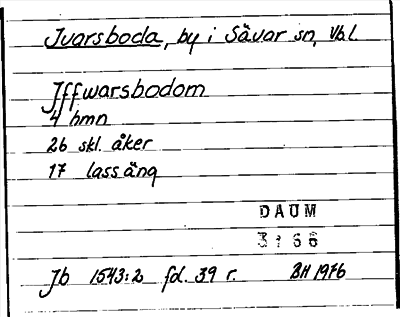 Jvarsboda, by i Sävar sn, Vb.l.
Jffwarsbodom
4 hmn
26 skl. åker
17 lass äng
DAUM
3:66
Jb 1543:2 fol. 39 r. BH 1976